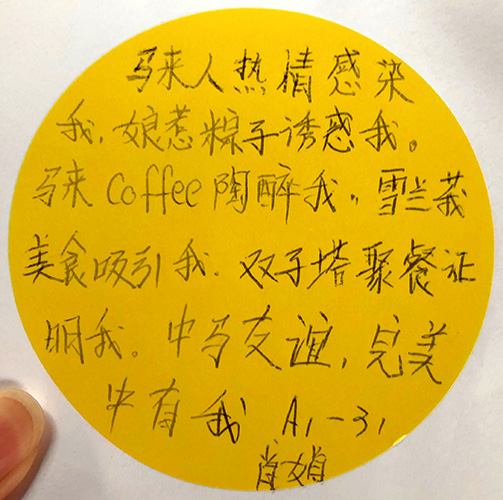 马来人热情感染
我,娘惹粽子诱惑我。
马来Coffee陶醉我,雪兰莪
美食吸引我.双子塔聚餐证
明我。中马友谊,完美
中有我 A1-31
肖娟